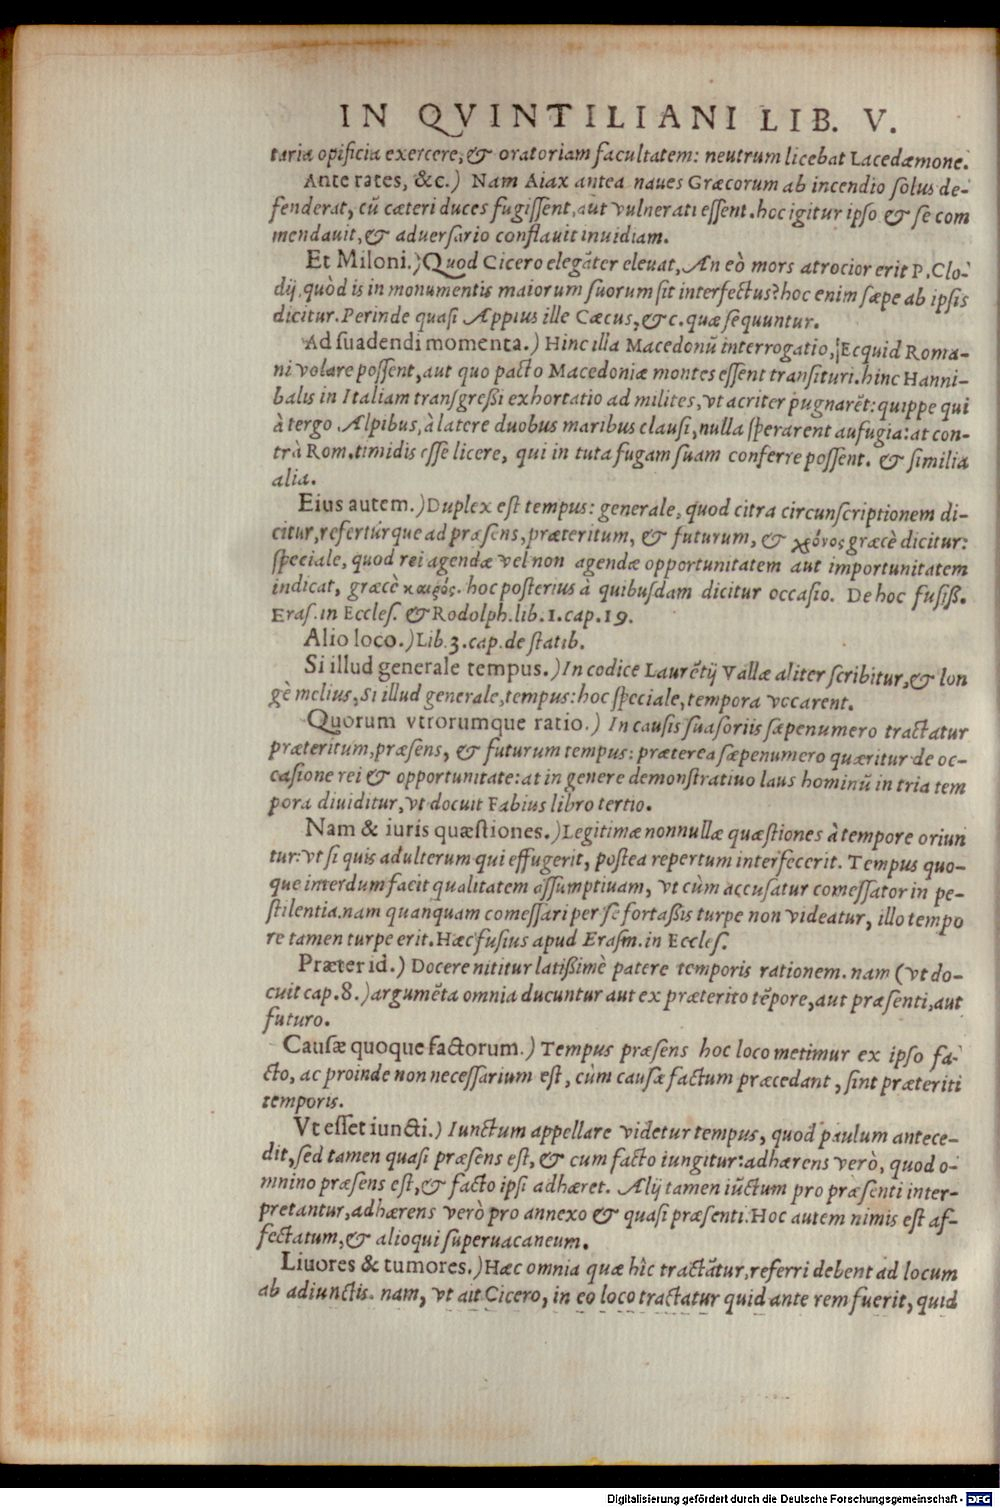 IN QVINTILIANI LIB. V.
taria opificia exercere, & oratoriam facultatem: neutrum licebat Lacedæmone.
Ante rates, &c.) Nam Aiax antea naues Græcorum ab incendio solus de-
fenderat, cū cæteri duces fugissent, aut vulnerati essent. hoc igitur ipso & se com
mendauit, & aduersario conflauit inuidiam.
Et Miloni.) Quod Cicero elegāter eleuat, An eò mors atrocior erit P. Clo-
dij, quòd is in monumentis maiorum suorum sit interfectus? hoc enim sæpe ab ipsis
dicitur. Perinde quasi Appius ille Cæcus, &c. quæ sequuntur.
Ad suadendi momenta.) Hinc illa Macedonū interrogatio, Ecquid Roma-
ni volare possent, aut quo pacto Macedoniæ montes essent transituri. hinc Hanni-
balis in Italiam transgreßi exhortatio ad milites, vt acriter pugnarēt: quippe qui
à tergo Alpibus, à latere duobus maribus clausi, nulla sperarent aufugia: at con-
trà Rom. timidis esse licere, qui in tuta fugam suam conferre possent. & similia
alia.
Eius autem.) Duplex est tempus: generale, quod citra circunscriptionem di-
citur, refertúrque ad præsens, præteritum, & futurum, & χρόνος græcè dicitur:
speciale, quod rei agendæ vel non agendæ opportunitatem aut importunitatem
indicat, græcè καιρός. hoc posterius à quibusdam dicitur occasio. De hoc fusiß.
Eras. in Eccles. & Rodolph. lib. 1. cap. 19.
Alio loco.) Lib. 3. cap. de statib.
Si illud generale tempus.) In codice Laurētij Vallæ aliter scribitur, & lon
gè melius, Si illud generale, tempus: hoc speciale, tempora vocarent.
Quorum vtrorumque ratio.) In causis suasoriis sæpenumero tractatur
præteritum, præsens, & futurum tempus: præterea sæpenumero quæritur de oc-
casione rei & opportunitate: at in genere demonstratiuo laus hominū in tria tem
pora diuiditur, vt docuit Fabius libro tertio.
Nam & iuris quæstiones.) Legitimæ nonnullæ quæstiones à tempore oriun
tur: vt si quis adulterum qui effugerit, postea repertum interfecerit. Tempus quo-
que interdum facit qualitatem assumptiuam, vt cùm accusatur comessator in pe-
stilentia. nam quanquam comessari per se fortaßis turpe non videatur, illo tempo
re tamen turpe erit. Hæc fusius apud Erasm. in Eccles.
Præter id.) Docere nititur latißimè patere temporis rationem. nam (vt do-
cuit cap. 8.) argumēta omnia ducuntur aut ex præterito tēpore, aut præsenti, aut
futuro.
Causæ quoque factorum.) Tempus præsens hoc loco metimur ex ipso fa-
cto, ac proinde non necessarium est, cùm causæ factum præcedant, sint præteriti
temporis.
Vt esset iuncti.) Iunctum appellare videtur tempus, quod paulum antece-
dit, sed tamen quasi præsens est, & cum facto iungitur: adhærens verò, quod o-
mnino præsens est, & facto ipsi adhæret. Alij tamen iūctum pro præsenti inter-
pretantur, adhærens verò pro annexo & quasi præsenti. Hoc autem nimis est af-
fectatum, & alioqui superuacaneum.
Liuores & tumores.) Hæc omnia quæ hîc tractātur, referri debent ad locum
ab adiunctis. nam, vt ait Cicero, in eo loco tractatur quid ante rem fuerit, quid
Digitalisierung gefördert durch die Deutsche Forschungsgemeinschaft - DFG